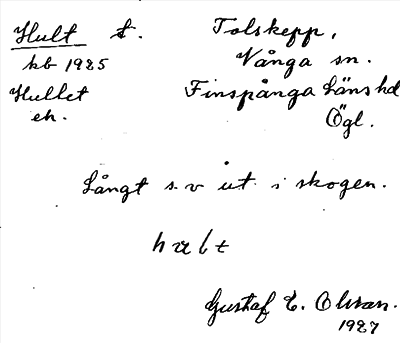 Hult t.
kb 1925
Hullet
ek.
Tolskepp,
Vånga sn.
Finspånga läns hd
Ögl.
Långt s.v ut i skogen.
hult
Gustaf E. Olsson.
1927